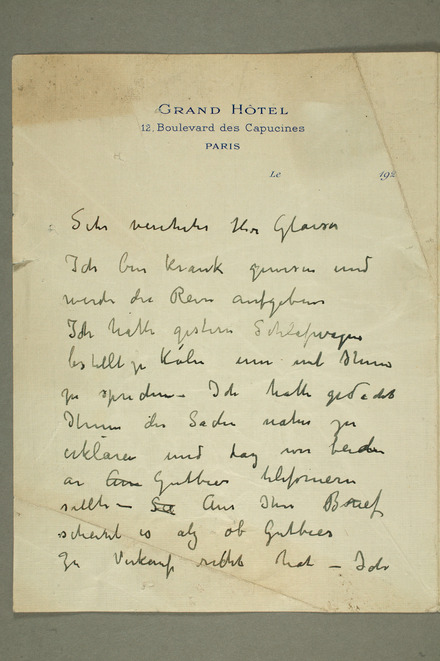 GRAND HÔTEL
12, Boulevard des Capucines
PARIS
Le 192
Sehr verehrter Herr Glaser
Ich bin krank gewesen und
werde die Reise aufgeben
Ich hatte gestern Schlafwagen
bestellt zu Köln um mit Ihnen
zu sprechen – Ich hatte gedacht
Ihnen die Sache näher zu
erklären und daß wir beiden
an Gutbier telefonieren
sollte – Aus Ihrem Brief
scheint es als ob Gutbier
zu Verkauf hat – Ich